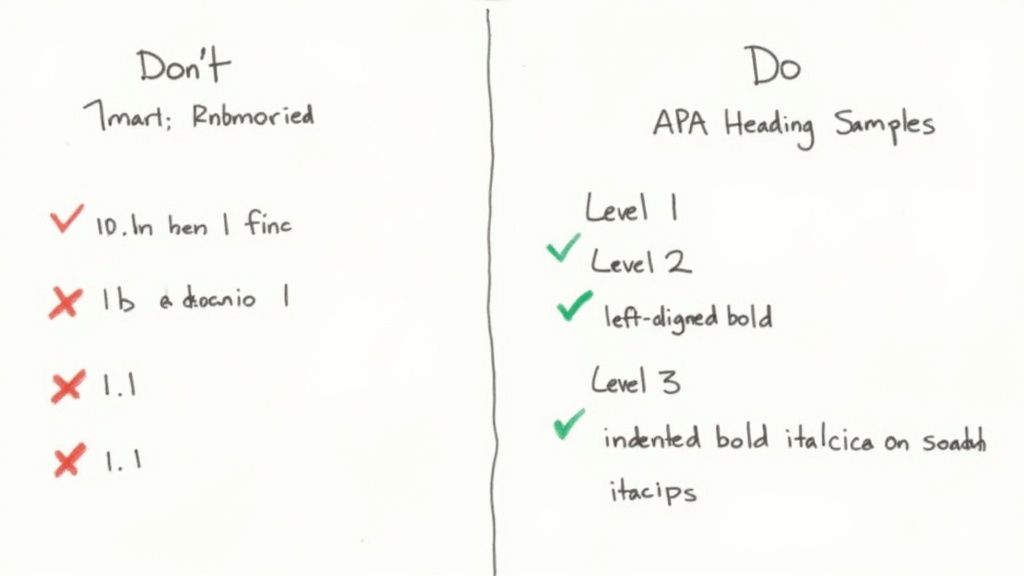 Don't
7mart; Rnbmoried
10. In hen I finc
1b a docnio 1
1.1
1.1
Do
APA Heading Samples
Level 1
Level 2
left-aligned bold
Level 3
indented bold italcica on
itacips